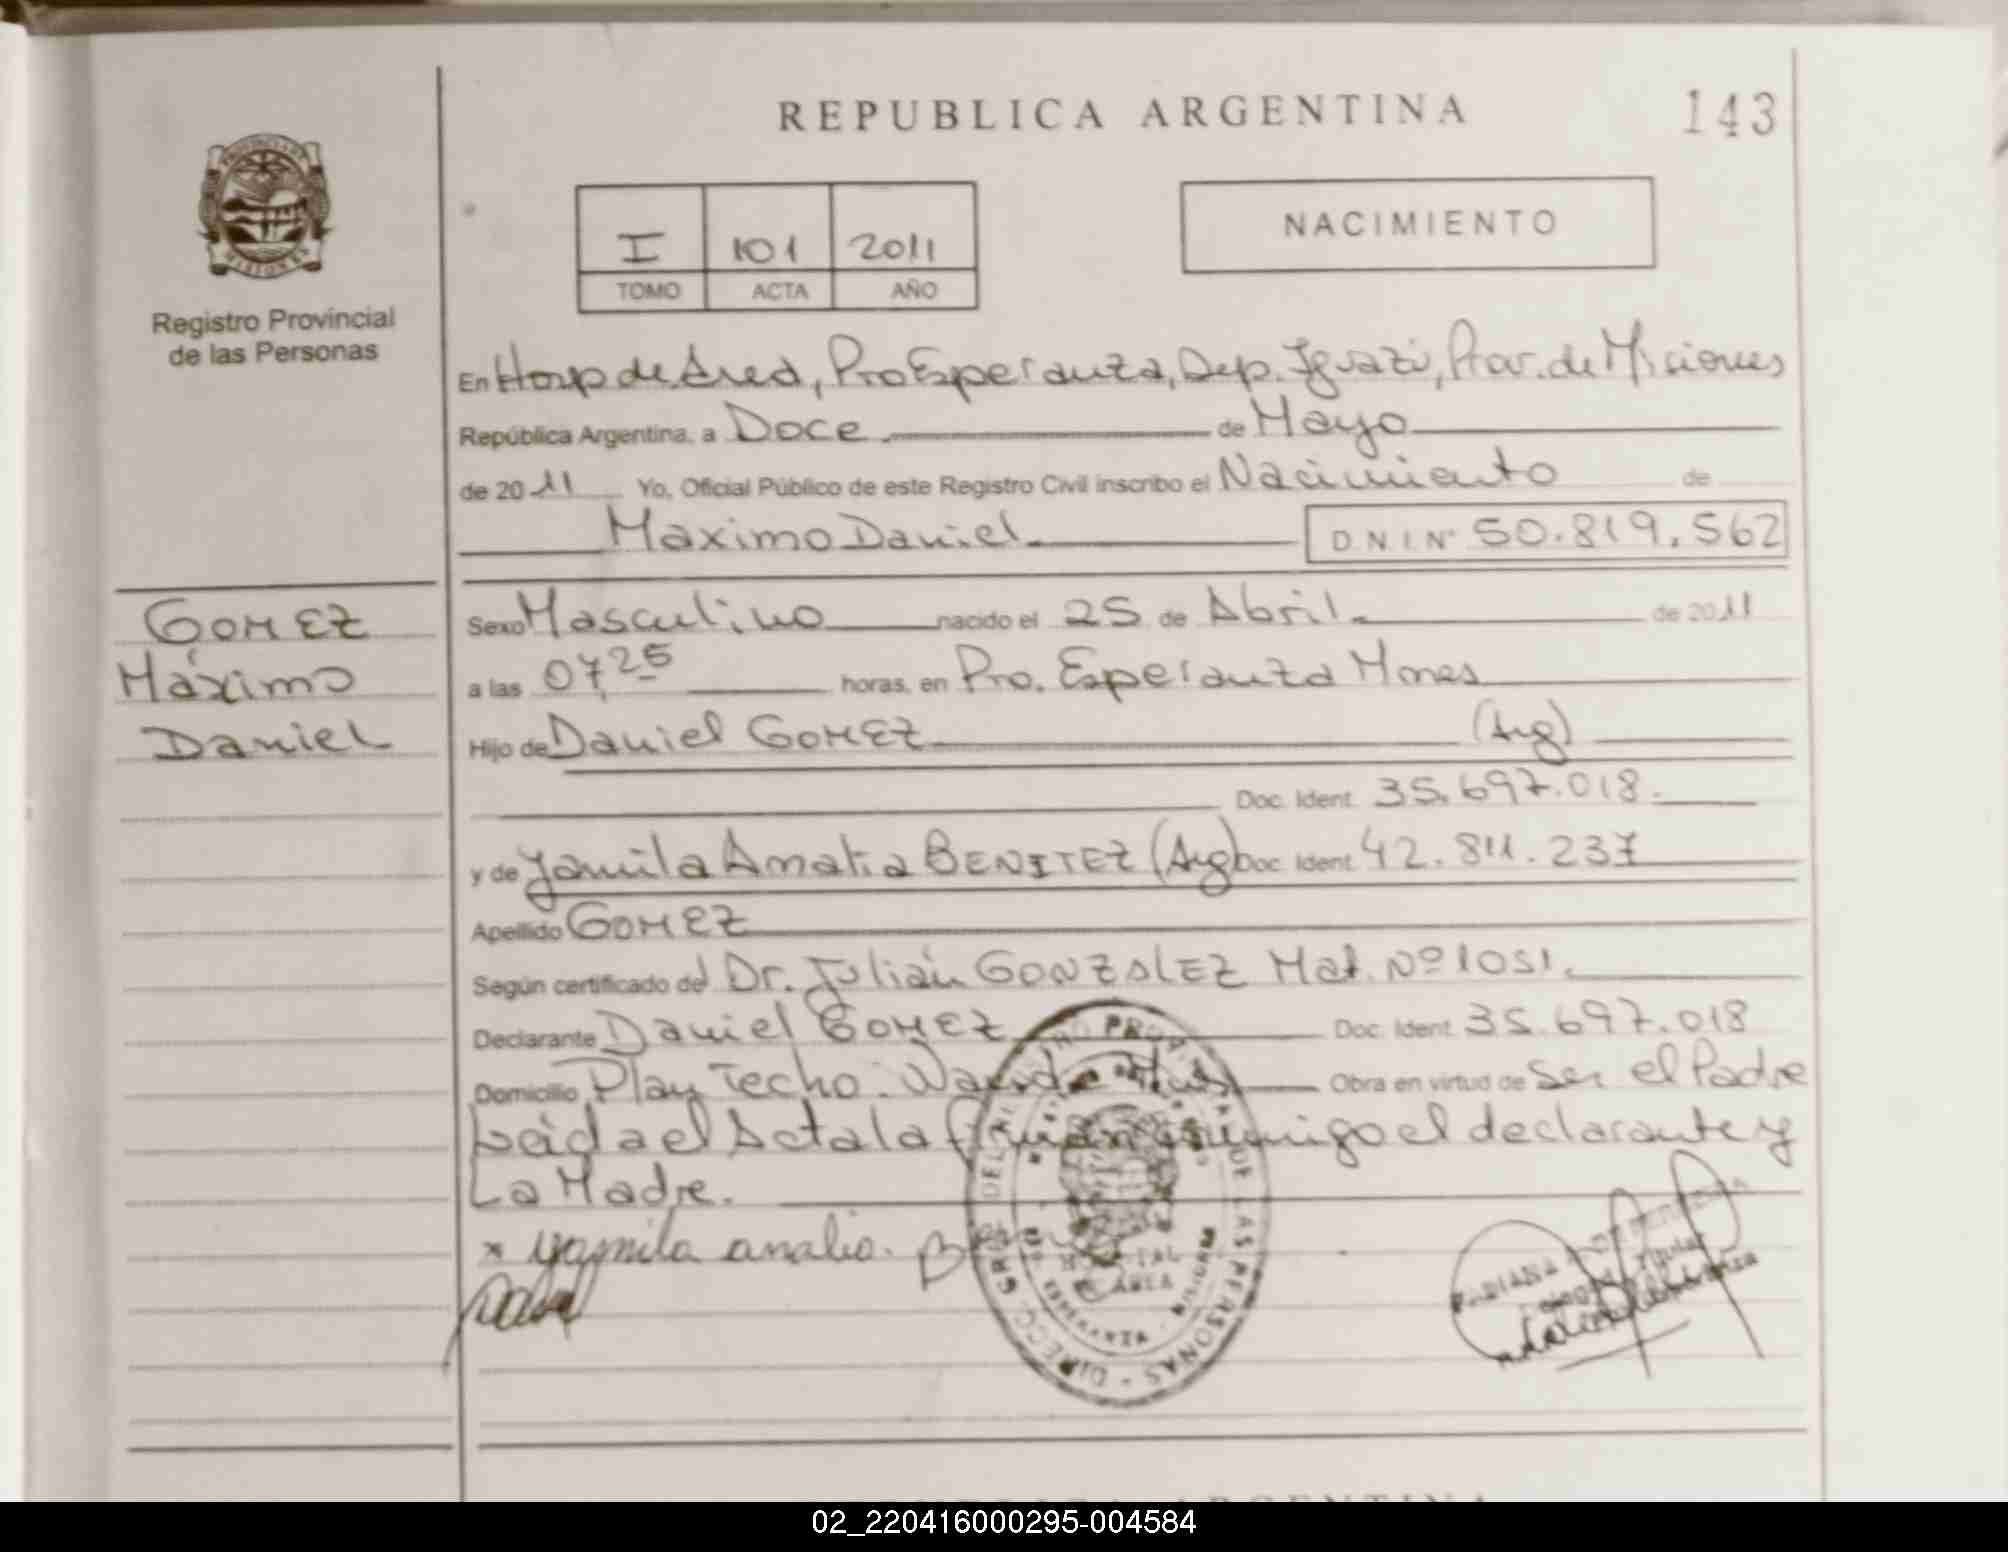 REPUBLICA ARGENTINA
143
PROVINCIA DE
MISIONES
Registro Provincial
de las Personas
I 101 2011
TOMO ACTA AÑO
NACIMIENTO
En Hosp de Area, Pto Esperanza, Dep. Iguazú, Prov. de Misiones
República Argentina, a Doce de Mayo
de 2011 Yo, Oficial Público de este Registro Civil inscribo el Nacimiento de
Maximo Daniel D N I Nº 50.819.562
GOMEZ
Máximo
Daniel
Sexo Masculino nacido el 25 de Abril de 2011
a las 07,25 horas, en Pto. Esperanza Mnes
Hijo de Daniel GOMEZ (Arg)
Doc. Ident. 35.697.018.
y de Yamila Analia BENITEZ (Arg) Doc. Ident. 42.811.237
Apellido GOMEZ
Según certificado del Dr. Julián GONZALEZ Mat. Nº 1051.
Declarante Daniel GOMEZ Doc. Ident. 35.697.018
Domicilio Plan Techo. Wanda Mnes Obra en virtud de Ser el Padre
Leida el Acta la firman conmigo el declarante y
La Madre.
x yamila analia. B
DIRECC GRAL DEL REGISTRO PROVINCIAL DE LAS PERSONAS
HOSPITAL
AREA
ESPERANZA - MISIONES
02_220416000295-004584